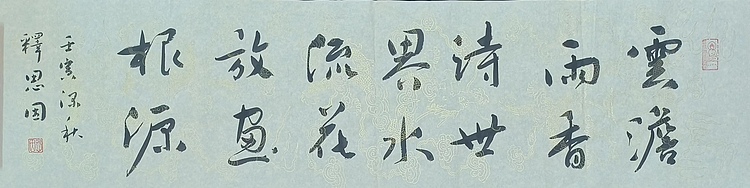 雲澹
雨香
詩世
界水
流花
放畫
根源
壬寅深秋
釋思因